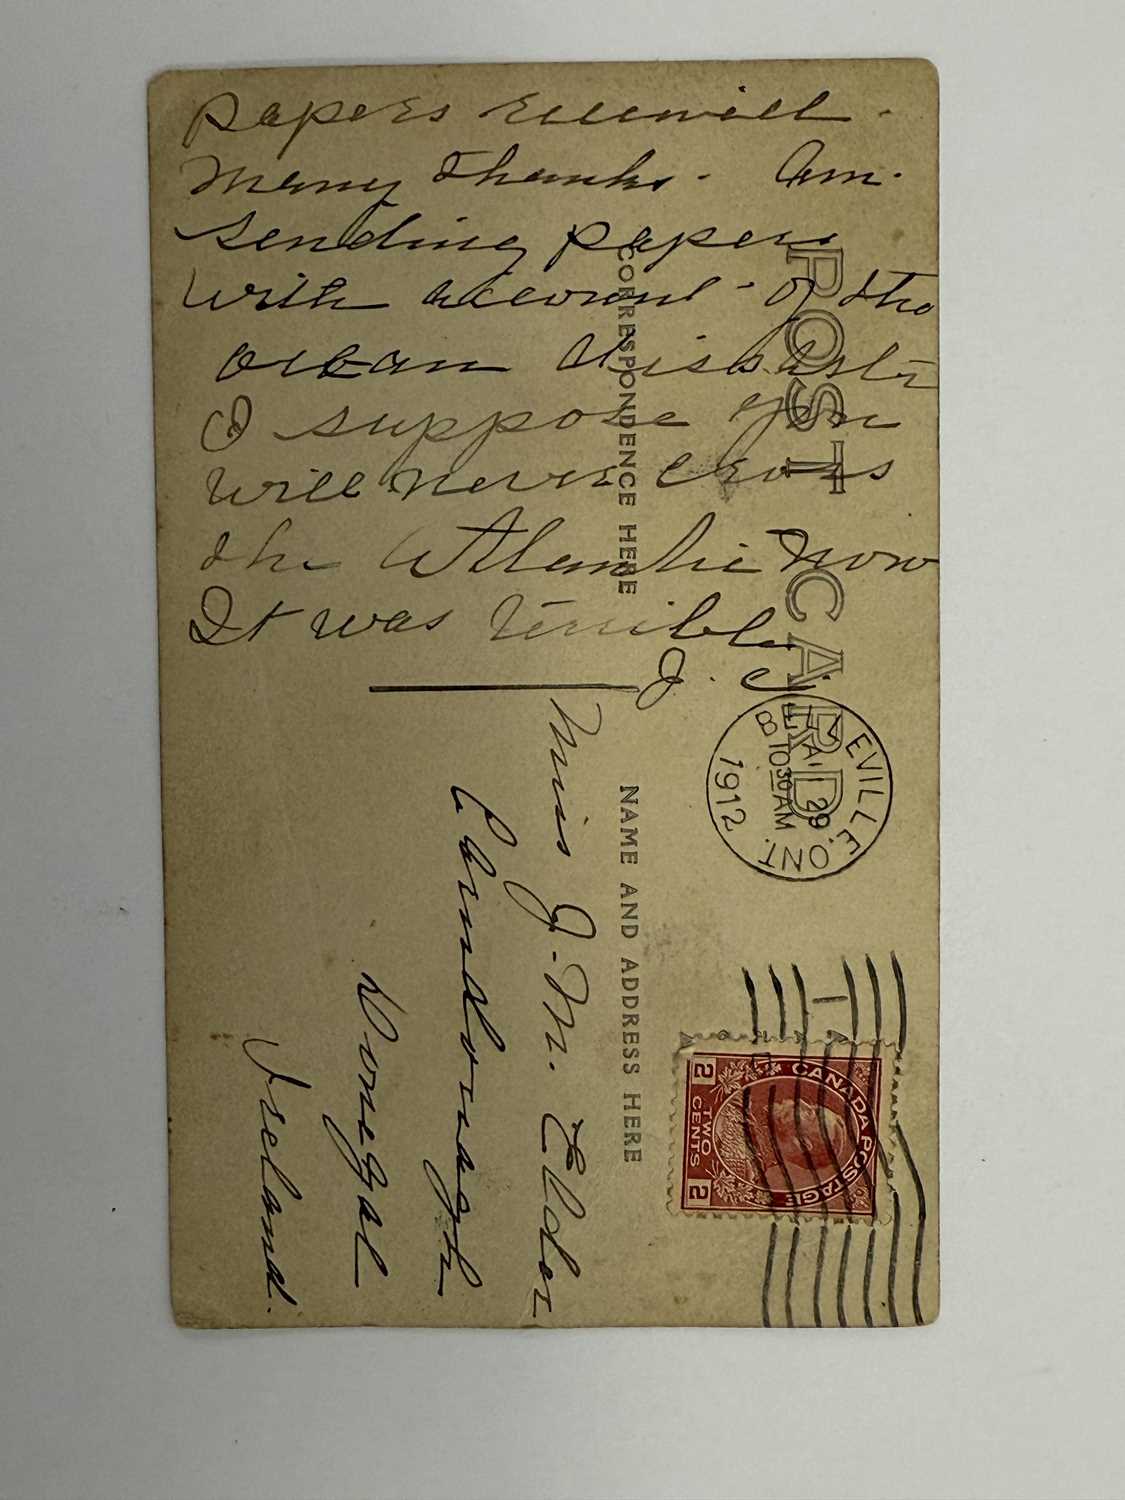 papers received.
Many thanks. Am
sending papers
with account of the
ocean disaster
I suppose you
will never cross
the Atlantic now
It was terrible
J.
POST CARD
CORRESPONDENCE HERE
NAME AND ADDRESS HERE
Miss J. M. Elder
Donegal
Ireland.
BELLEVILLE, ONT.
29
10 30 AM
1912
CANADA POSTAGE
2 TWO CENTS 2